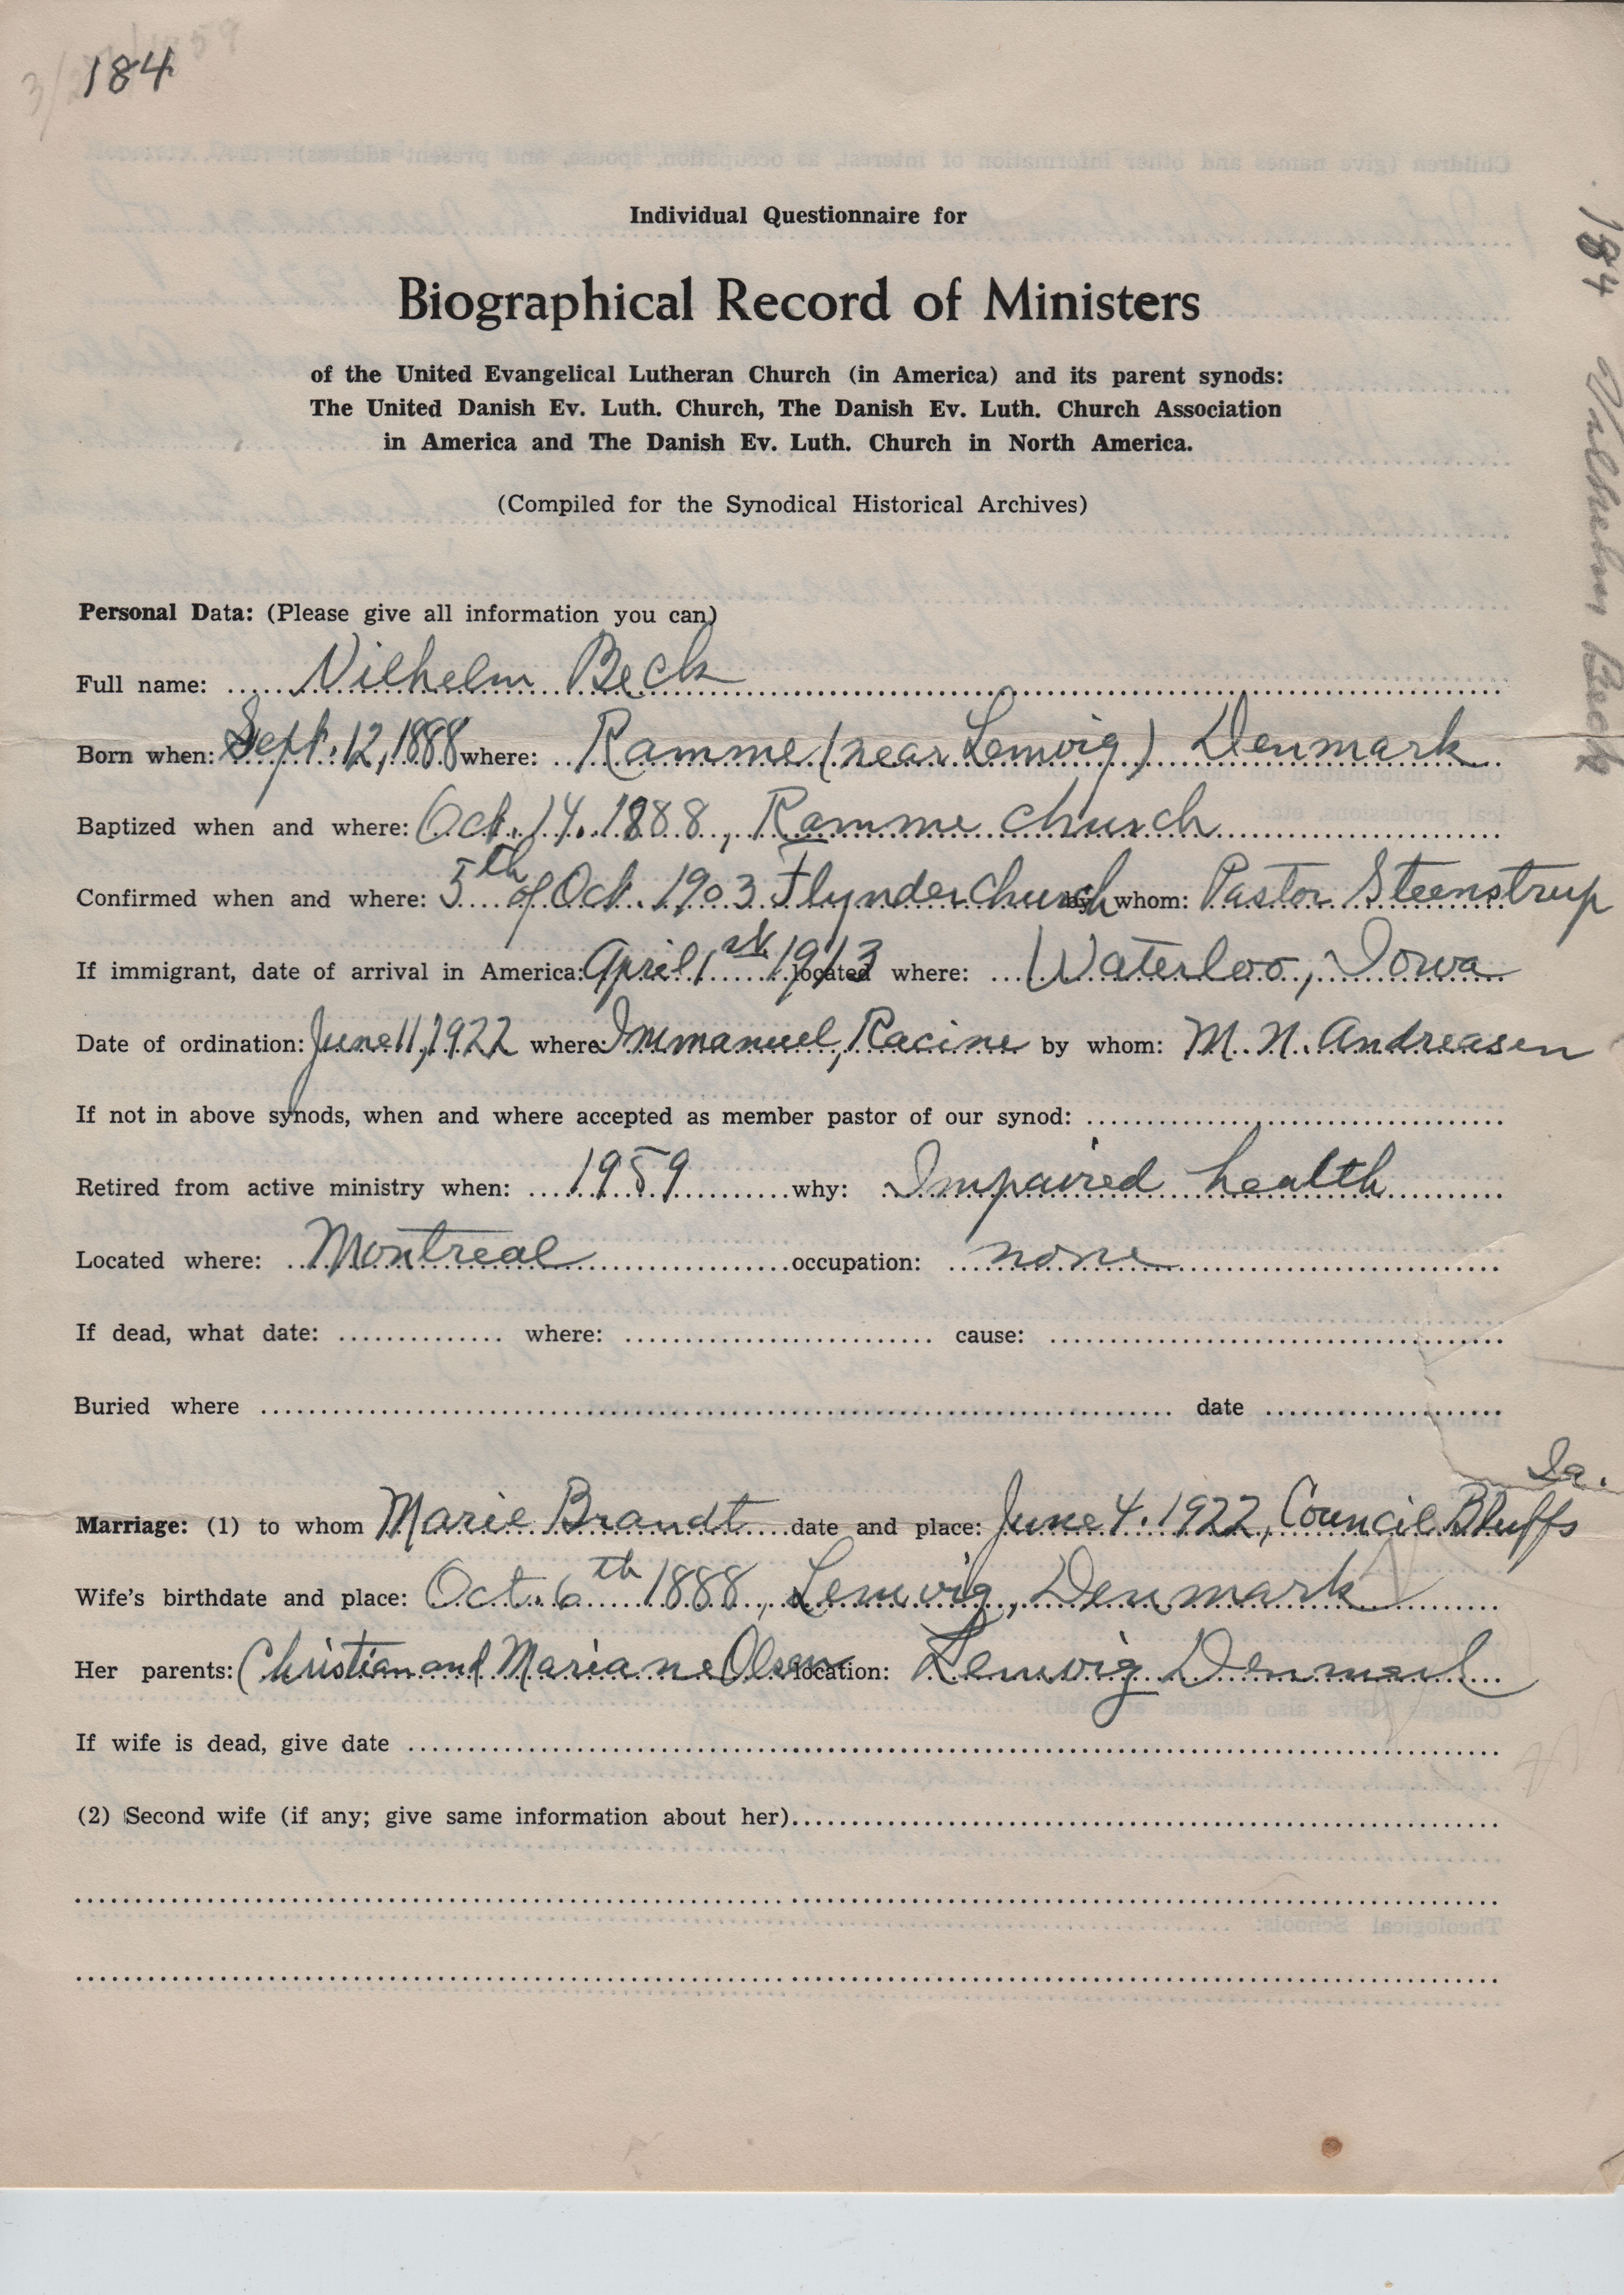 184
Individual Questionnaire for
Biographical Record of Ministers
of the United Evangelical Lutheran Church (in America) and its parent synods:
The United Danish Ev. Luth. Church, The Danish Ev. Luth. Church Association
in America and The Danish Ev. Luth. Church in North America.
(Compiled for the Synodical Historical Archives)
184 Vilhelm Beck
Personal Data: (Please give all information you can)
Full name: Vilhelm Beck
Born when: Sept. 12, 1888 where: Ramme (near Lemvig) Denmark
Baptized when and where: Oct. 14. 1888, Ramme church
Confirmed when and where: 5th of Oct. 1903 Flynder church by whom: Pastor Steenstrup
If immigrant, date of arrival in America: April 1st 1913 located where: Waterloo, Iowa
Date of ordination: June 11, 1922 where: Immanuel, Racine by whom: M. N. Andreasen
If not in above synods, when and where accepted as member pastor of our synod:
Retired from active ministry when: 1959 why: Impaired health
Located where: Montreal occupation: none
If dead, what date: where: cause:
Buried where date
Marriage: (1) to whom Marie Brandt date and place: June 4. 1922, Council Bluffs Ia.
Wife's birthdate and place: Oct. 6th 1888, Lemvig, Denmark
Her parents: Christian and Mariane Olsen location: Lemvig Denmark
If wife is dead, give date
(2) Second wife (if any; give same information about her)